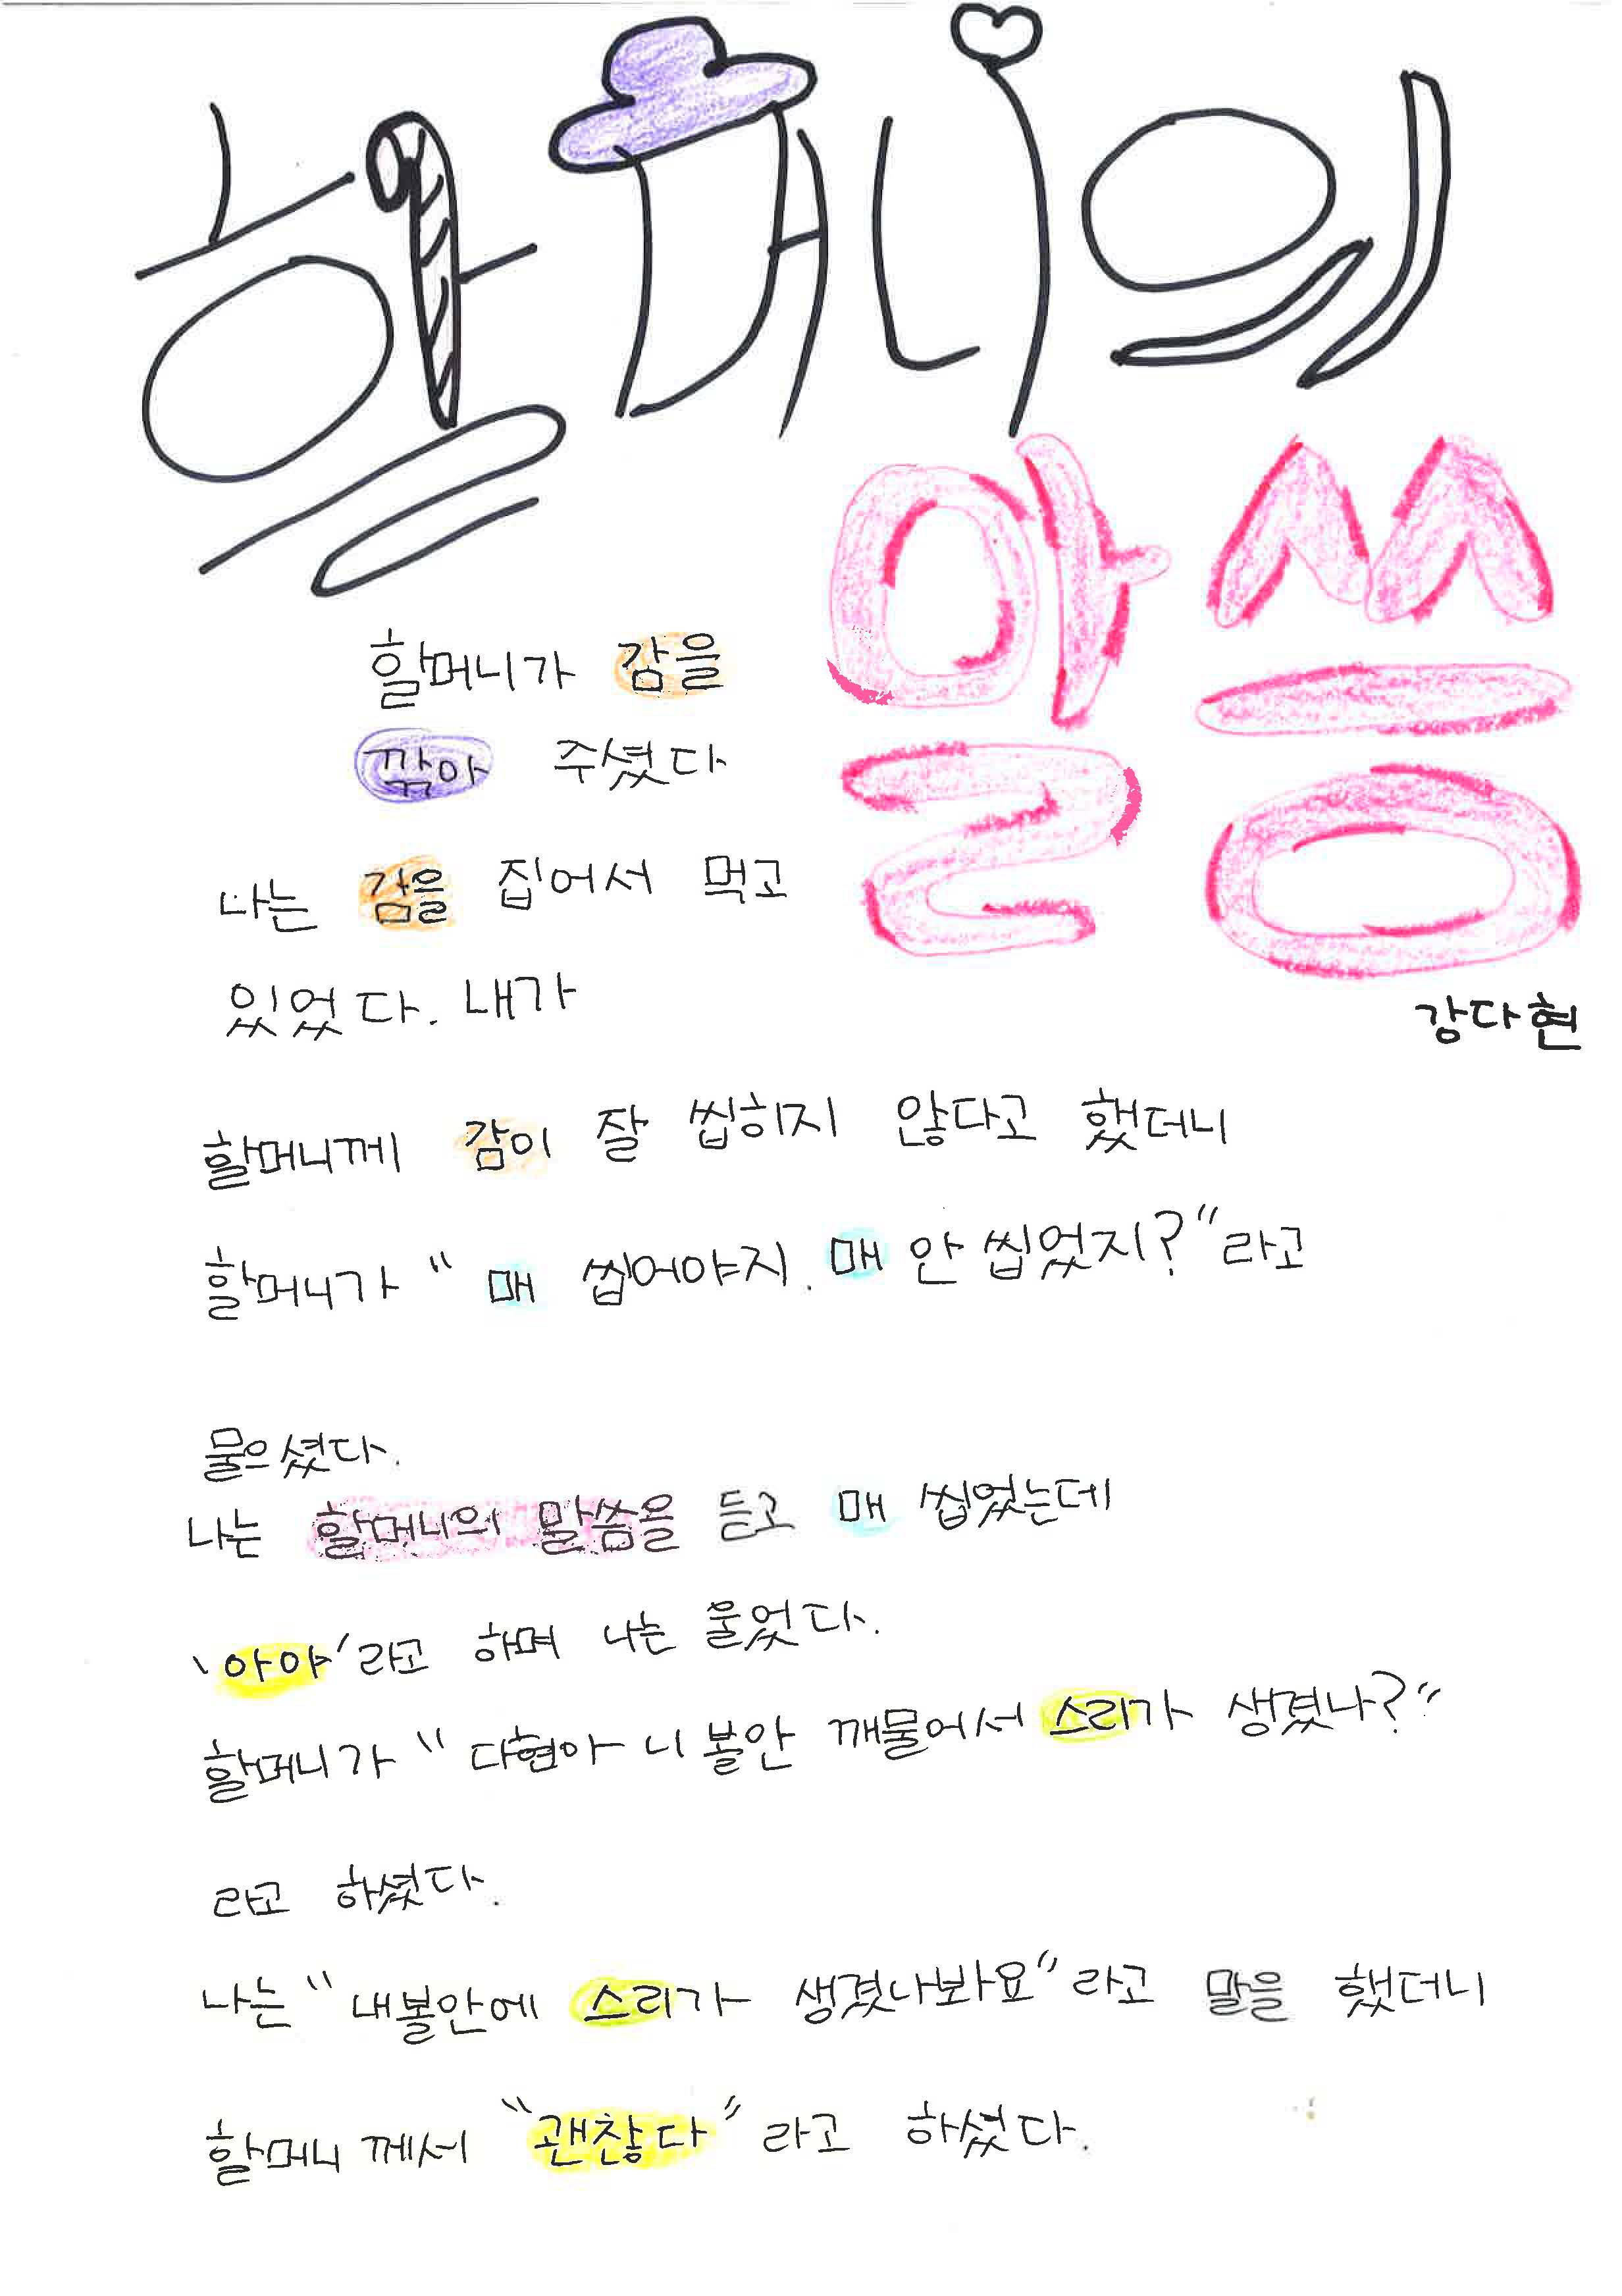 할머니의
말씀
강다현
할머니가 감을
깎아 주셨다
나는 감을 집어서 먹고
있었다. 내가
할머니께 감이 잘 씹히지 않다고 했더니
할머니가 " 매 씹어야지. 매 안 씹었지?"라고
물으셨다.
나는 할머니의 말씀을 듣고 매 씹었는데
'아야'라고 하며 나는 울었다.
할머니가 " 다현아 니 볼안 깨물어서 스리가 생겼나?"
라고 하셨다.
나는 "내볼안에 스리가 생겼나봐요"라고 말을 했더니
할머니 께서 "괜찮다" 라고 하셨다.